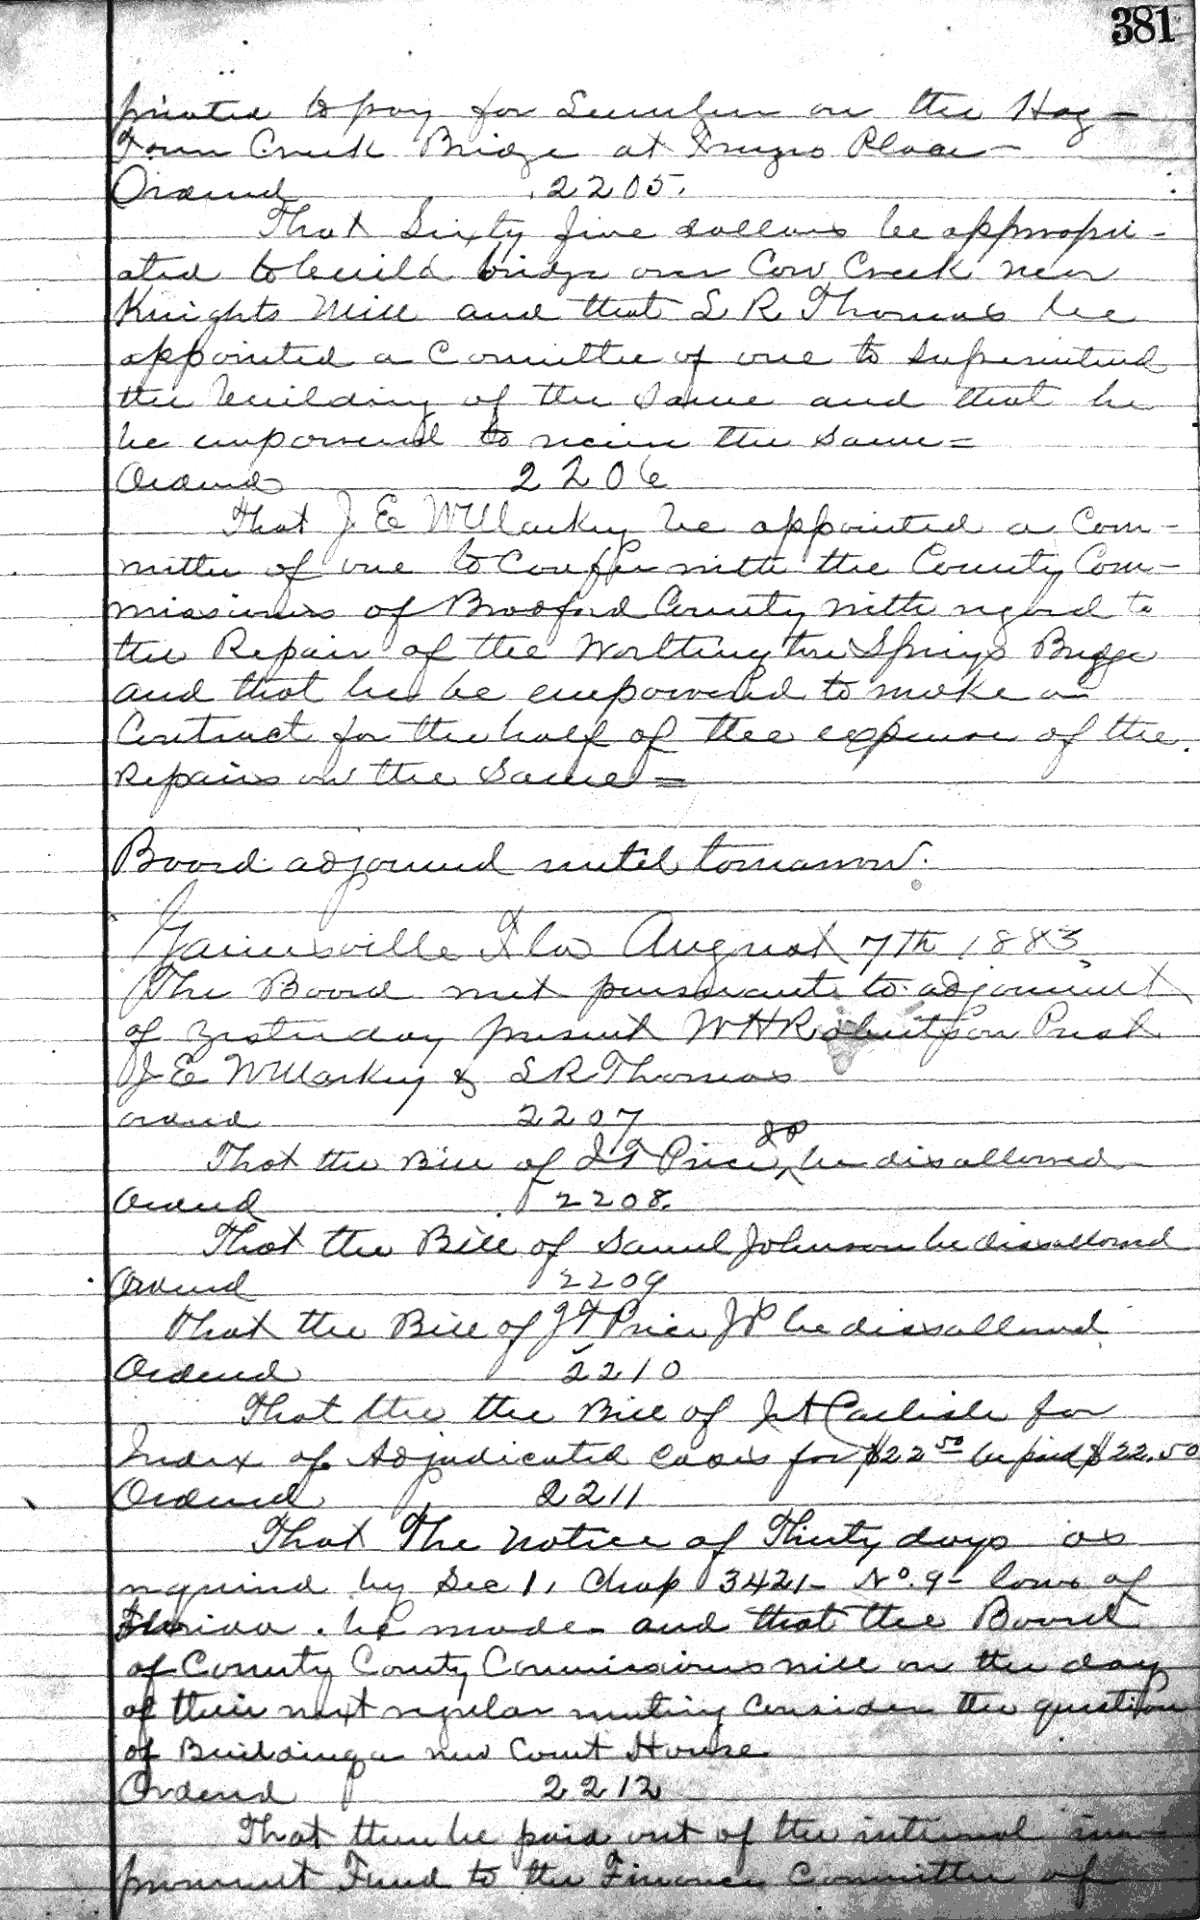 381
priated to pay for Lumber on the Hog-
Town Creek Bridge at Place-
Ordered 2205.
That Sixty five dollars be appropri-
ated to build bridge over Cow Creek near
Knights Mill and that S R Thomas be
appointed a Committee of one to Superintend
the building of the Same and that he
be empowered to receive the same =
Ordered 2206
That J E be appointed a Com-
mittee of one to Confer with the County Com-
missioners of Bradford County with regard to
the Repair of the Worthington Springs Bridge
and that he be empowered to make a
Contract for the half of the expense of the
Repairs on the Same =
Board adjourned until tomorrow.
Gainesville Fla August 7th 1883
The Board met pursuant to adjournment
of yesterday present W H Robertson Prest
J E & S R Thomas
ordered 2207
That the Bill of J T Price JP be disallowed
Ordered 2208.
That the Bill of Samuel Johnson be disallowed
Ordered 2209
that the Bill of J T Price JP be dissallowed
Ordered 2210
That the the Bill of J A Carlisle for
Index of Adjudicated cases for $22 50 be paid $22.50
Ordered 2211
That The Notice of Thirty days as
required by Sec 1, Chap 3421- No. 9- laws of
Florida. be made and that the Board
of County County Commissioners will on the day
of their next regular meeting consider the question
of Building a new Court House
Ordered 2212
That there be paid out of the internal im-
provement Fund to the Finance Committee of